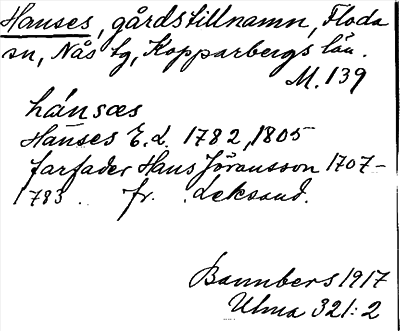 Hanses, gårdstillnamn, Floda
sn, Nås tg, Kopparbergs län.
M. 139
hánsæs
Hanses E. d. 1782, 1805
farfader Hans Jöransson 1707-
1783. fr. Leksand.
Bannbers 1917
Ulma 321:2